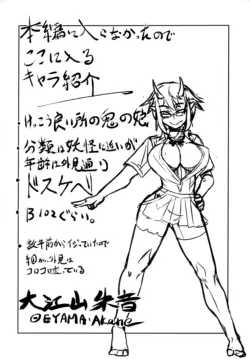 本編に入らなかったので
ここに入る
キャラ紹介
けっこう良い所の鬼の娘
分類は妖怪に近いが
年齢は外見通り
ドスケベ
B102ぐらい。
数年前からイジっていたので
細かい外見は
コロコロ変っている
大江山朱音
OEYAMA・Akane